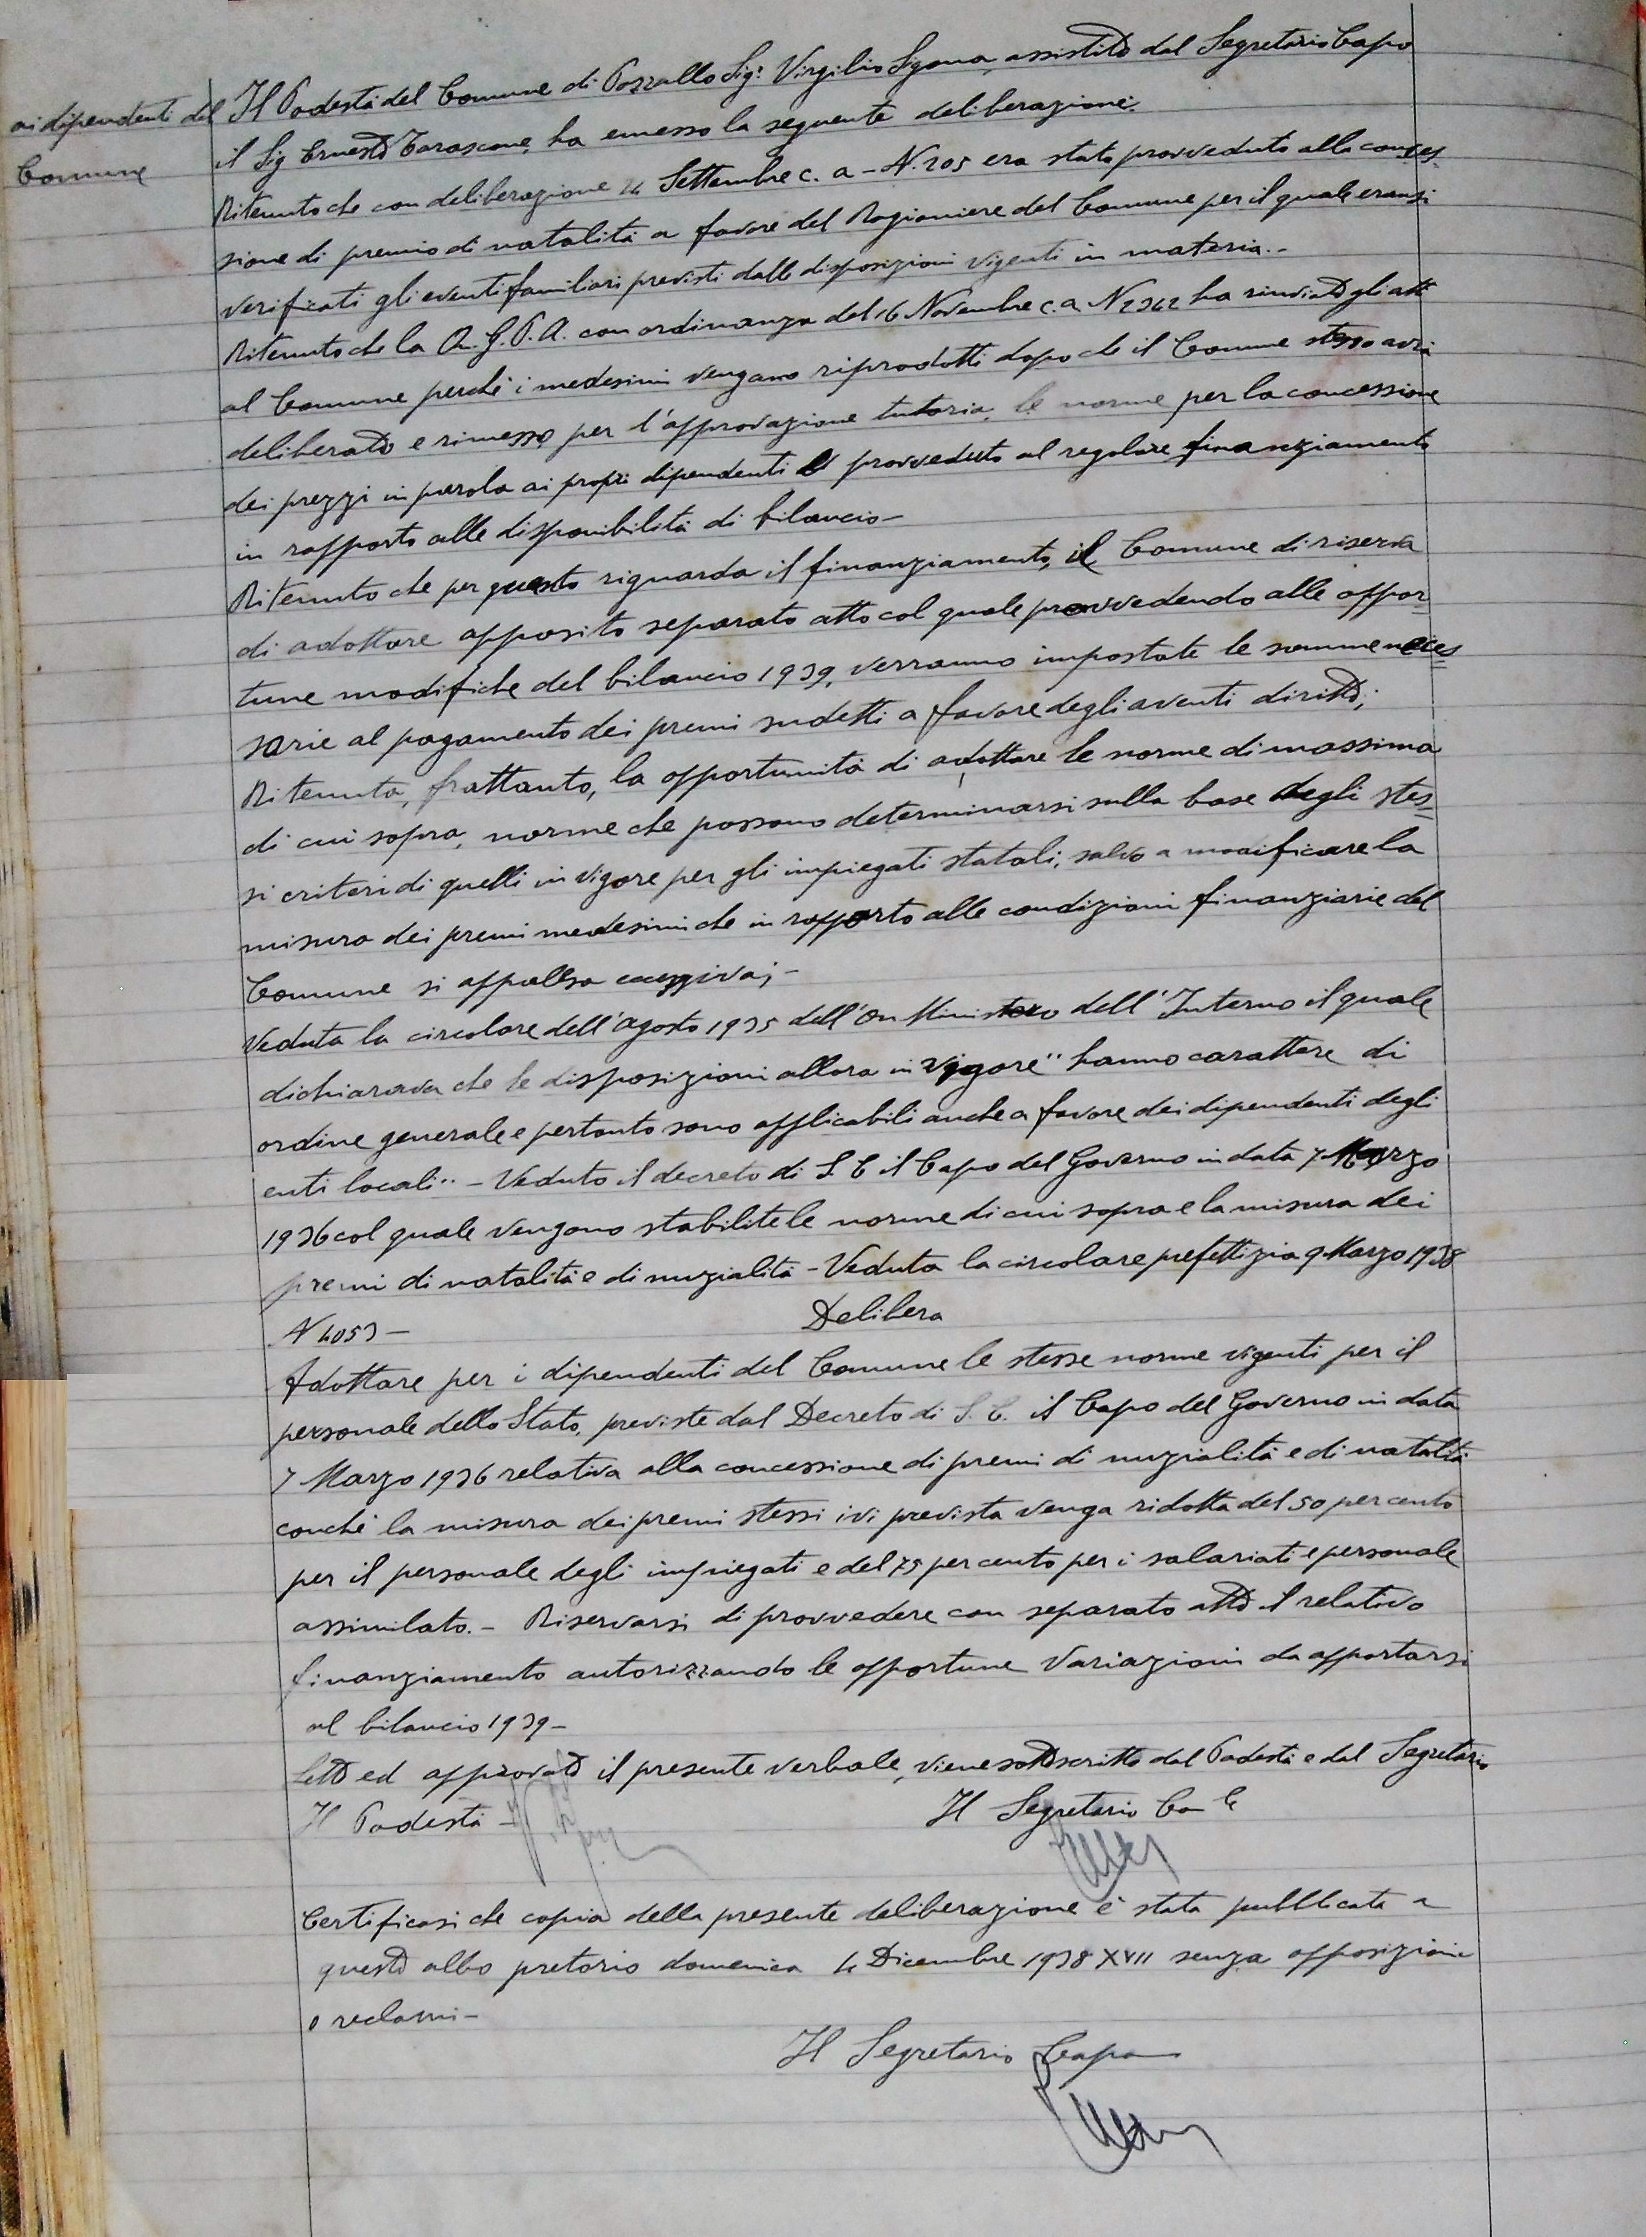 ai dipendenti del
Comune
Il Podestà del Comune di Pozzallo Sig. Virgilio Sgona, assistito dal Segretario Capo
il Sig Ernesto Tarascone, ha emesso la seguente deliberazione.
Ritenuto che con deliberazione 24 Settembre c. a - N. 205 era stato provveduto alla conces
sione di premio di natalità a favore del Ragioniere del Comune per il quale eransi
verificati gli eventi familiari previsti dalle disposizioni vigenti in materia.-
Ritenuto che la On. G. P. A. con ordinanza del 16 Novembre c. a N 2362 ha rinviato gli atti
al Comune perchè i medesimi vengano riprodotti dopo che il Comune stesso avrà
deliberato e rimesso per l'approvazione tutoria, le norme per la concessione
dei prezzi in parola ai propri dipendenti e provveduto al regolare finanziamento
in rapporto alle disponibilità di bilancio-
Ritenuto che per questo riguarda il finanziamento, il Comune di riserva
di adottare apposito separato atto col quale provvedendo alle oppor
tune modifiche del bilancio 1939, verranno impostate le somme neces
sarie al pagamento dei premi sudetti a favore degli aventi diritto;
Ritenuta, frattanto, la opportunità di adottare le norme di massima
di cui sopra, norme che possono determinarsi sulla base degli stes
si criteri di quelli in vigore per gli impiegati statali, salvo a modificare la
misura dei premi medesimi che in rapporto alle condizioni finanziarie del
Comune si appalesa eccessiva;-
Veduta la circolare dell'agosto 1935 dell'On Ministero dell'Interno il quale
dichiarava che le disposizioni allora in vigore" hanno carattere di
ordine generale e pertanto sono applicabili anche a favore dei dipendenti degli
enti locali" - Veduto il decreto di S. E il Capo del Governo in data 7 Marzo
1936 col quale vengono stabilite le norme di cui sopra e la misura dei
premi di natalità e di nuzialità - Veduta la circolare prefettizia 9 Marzo 1938
N 4053 -
Delibera
Adottare per i dipendenti del Comune le stesse norme vigenti per il
personale dello Stato, previste dal Decreto di S. E. il Capo del Governo in data
7 Marzo 1936 relativa alla concessione di premi di nuzialità e di natalità
conchè la misura dei premi stessi ivi prevista venga ridotta del 50 per cento
per il personale degli impiegati e del 75 per cento per i salariati e personale
assimilato. - Riservarsi di provvedere con separato atto il relativo
finanziamento autorizzando le opportune variazioni da apportarsi
al bilancio 1939-
Letto ed approvato il presente verbale, viene sottoscritto dal Podestà e dal Segretario
Il Podestà
Il Segretario
Certificasi che copia della presente deliberazione è stata pubblicata a
questo albo pretorio domenica 4 Dicembre 1938 XVII senza opposizioni
o reclami-
Il Segretario Capo